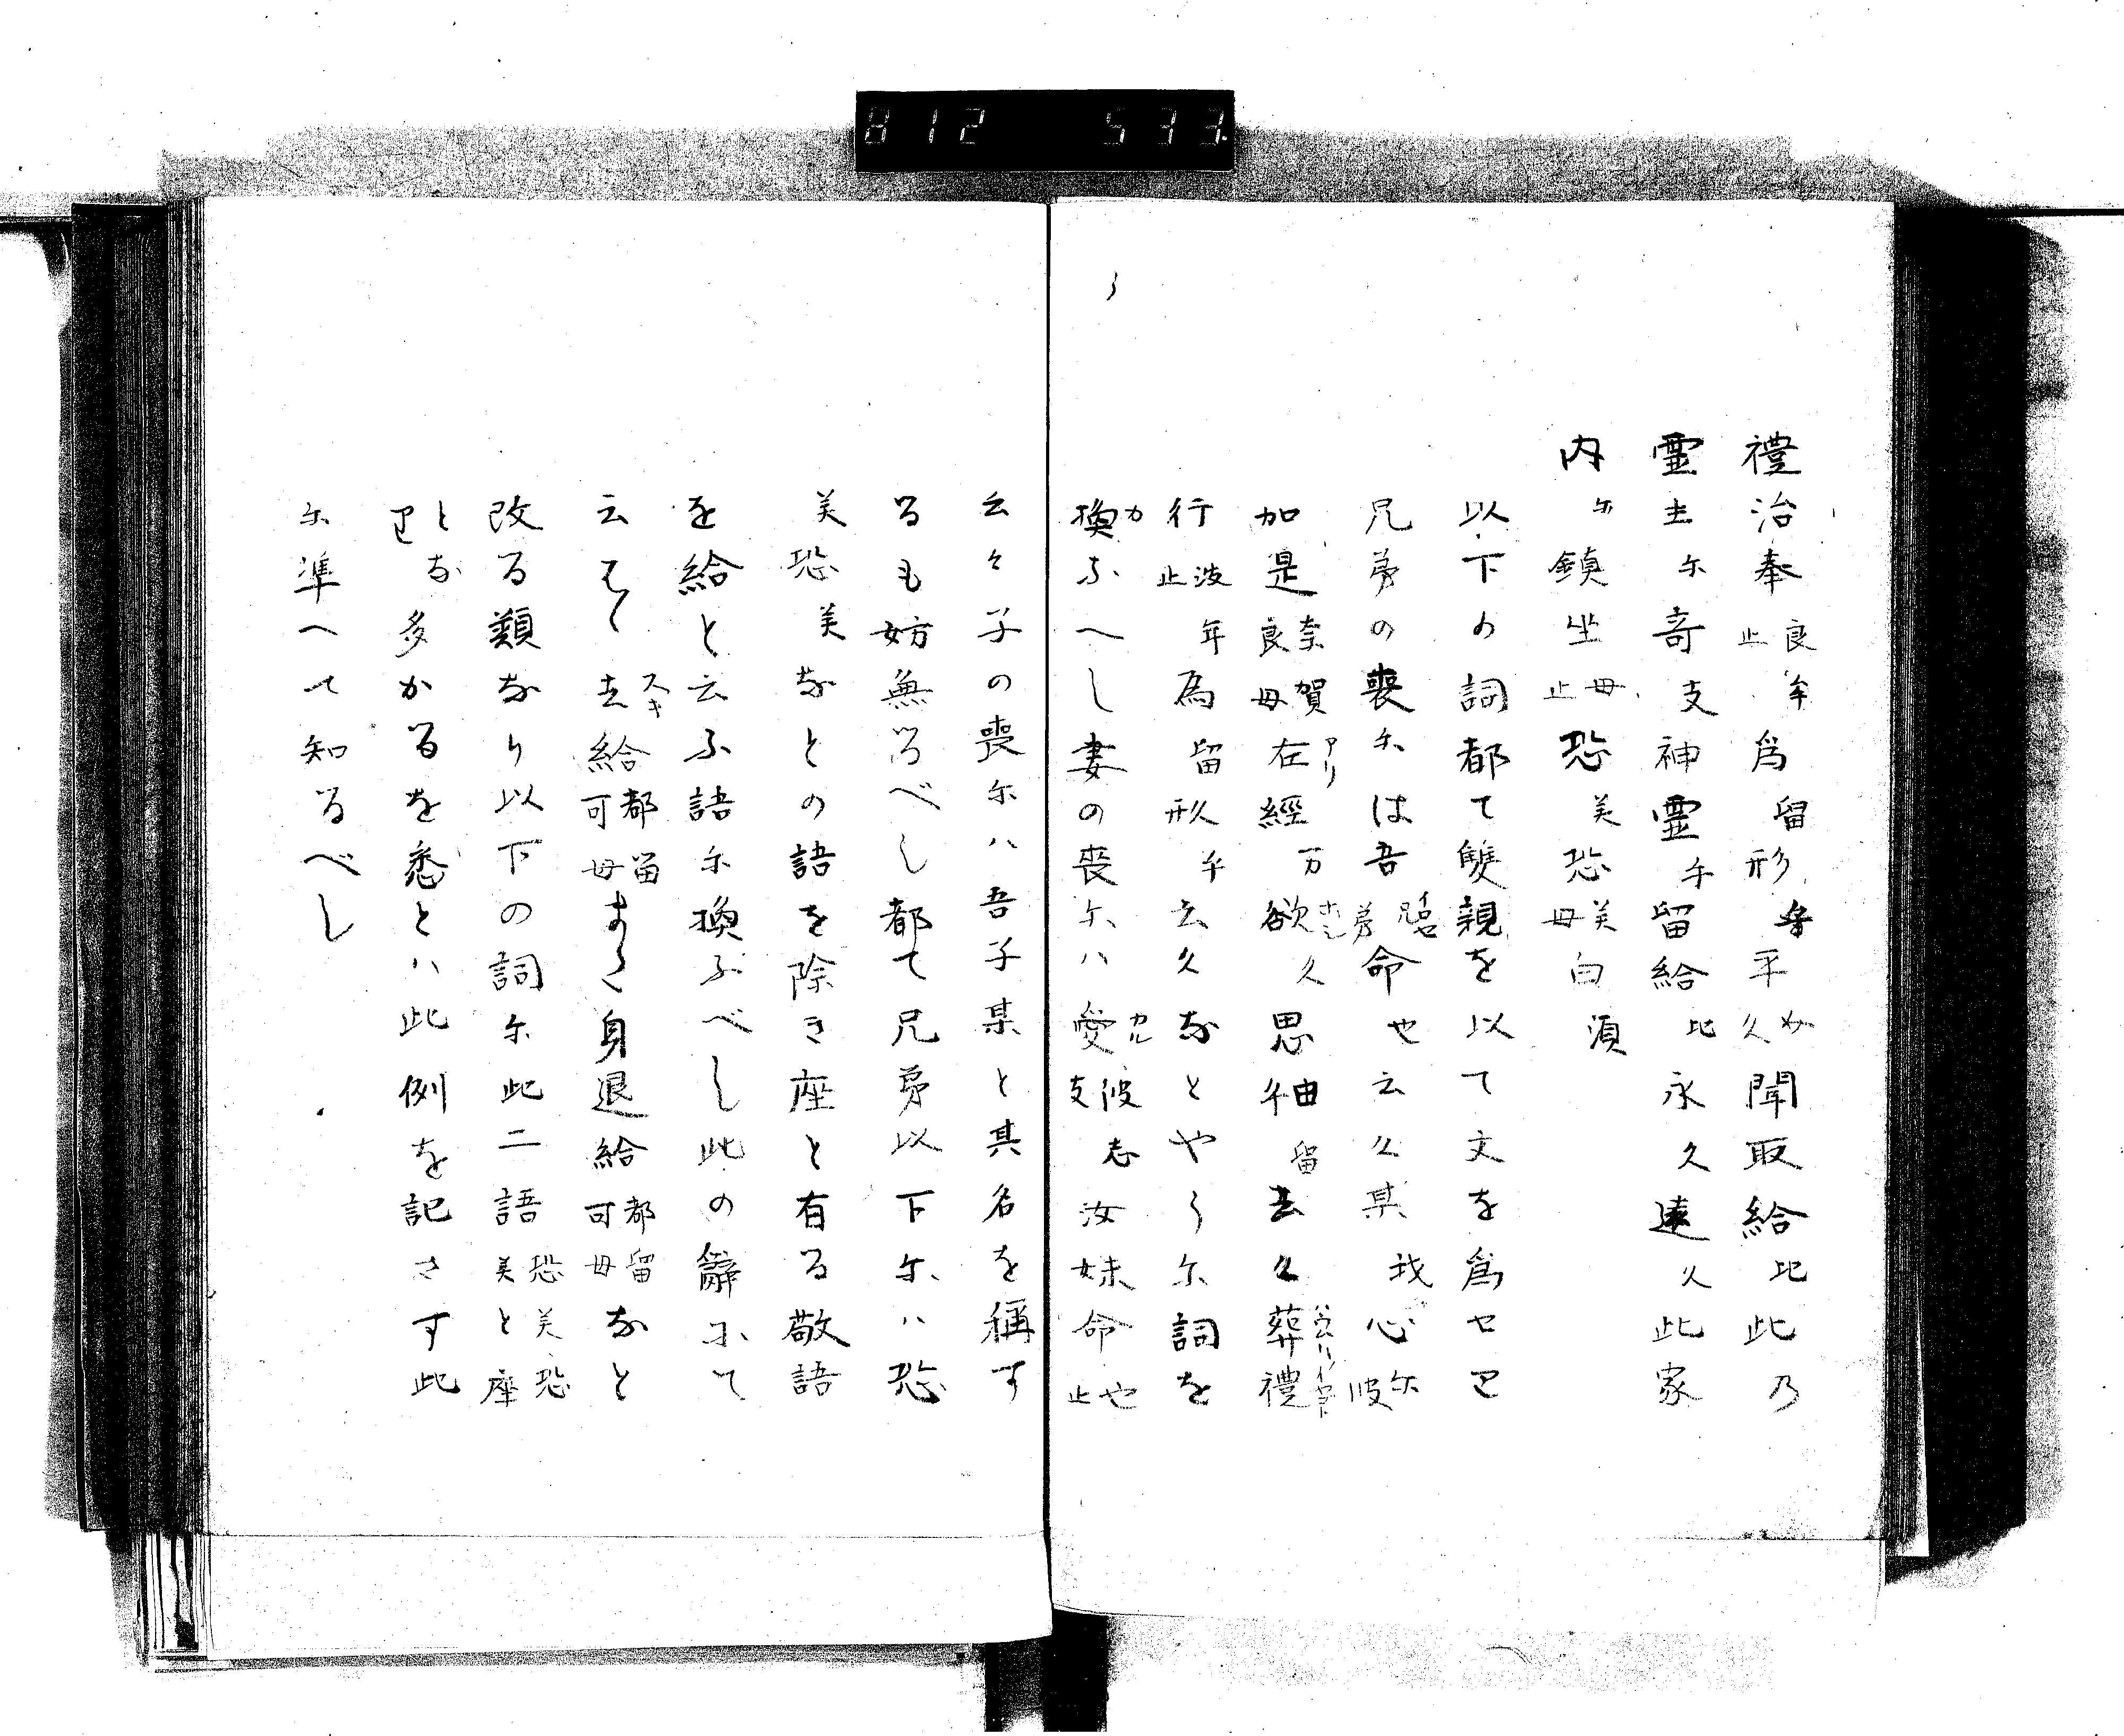 812 533
禮治奉良止牟爲留形乎平加久聞取給比此乃
靈主尓奇支神靈乎留給比永久遠久此家
内尓鎮坐止毋恐美恐美毋白須
以下の詞都て雙親を以て文を爲セㇼ
兄弟の喪尓は吾兄弟命也云久某我心尓彼
加是奈良賀毋在經万欲久思袖留去久葬禮
行止波年為留形乎云久なとやう尓詞を
換ふへし妻の喪尓ハ愛支彼志汝妹命止也
云々子の喪尓ハ吾子某と其名を稱す
るも妨無るべし都て兄弟以下尓ハ恐
美恐美なとの語を除き座と有る敬語
を給と云ふ語尓換ふべし此の辭尓て
云はゝ去給可都毋留まゝ身退給可都毋留なと
改る類なり以下の詞尓此二語恐美恐美と座
となり多かるを悉とハ此例を記さす此
尓準へて知るべし